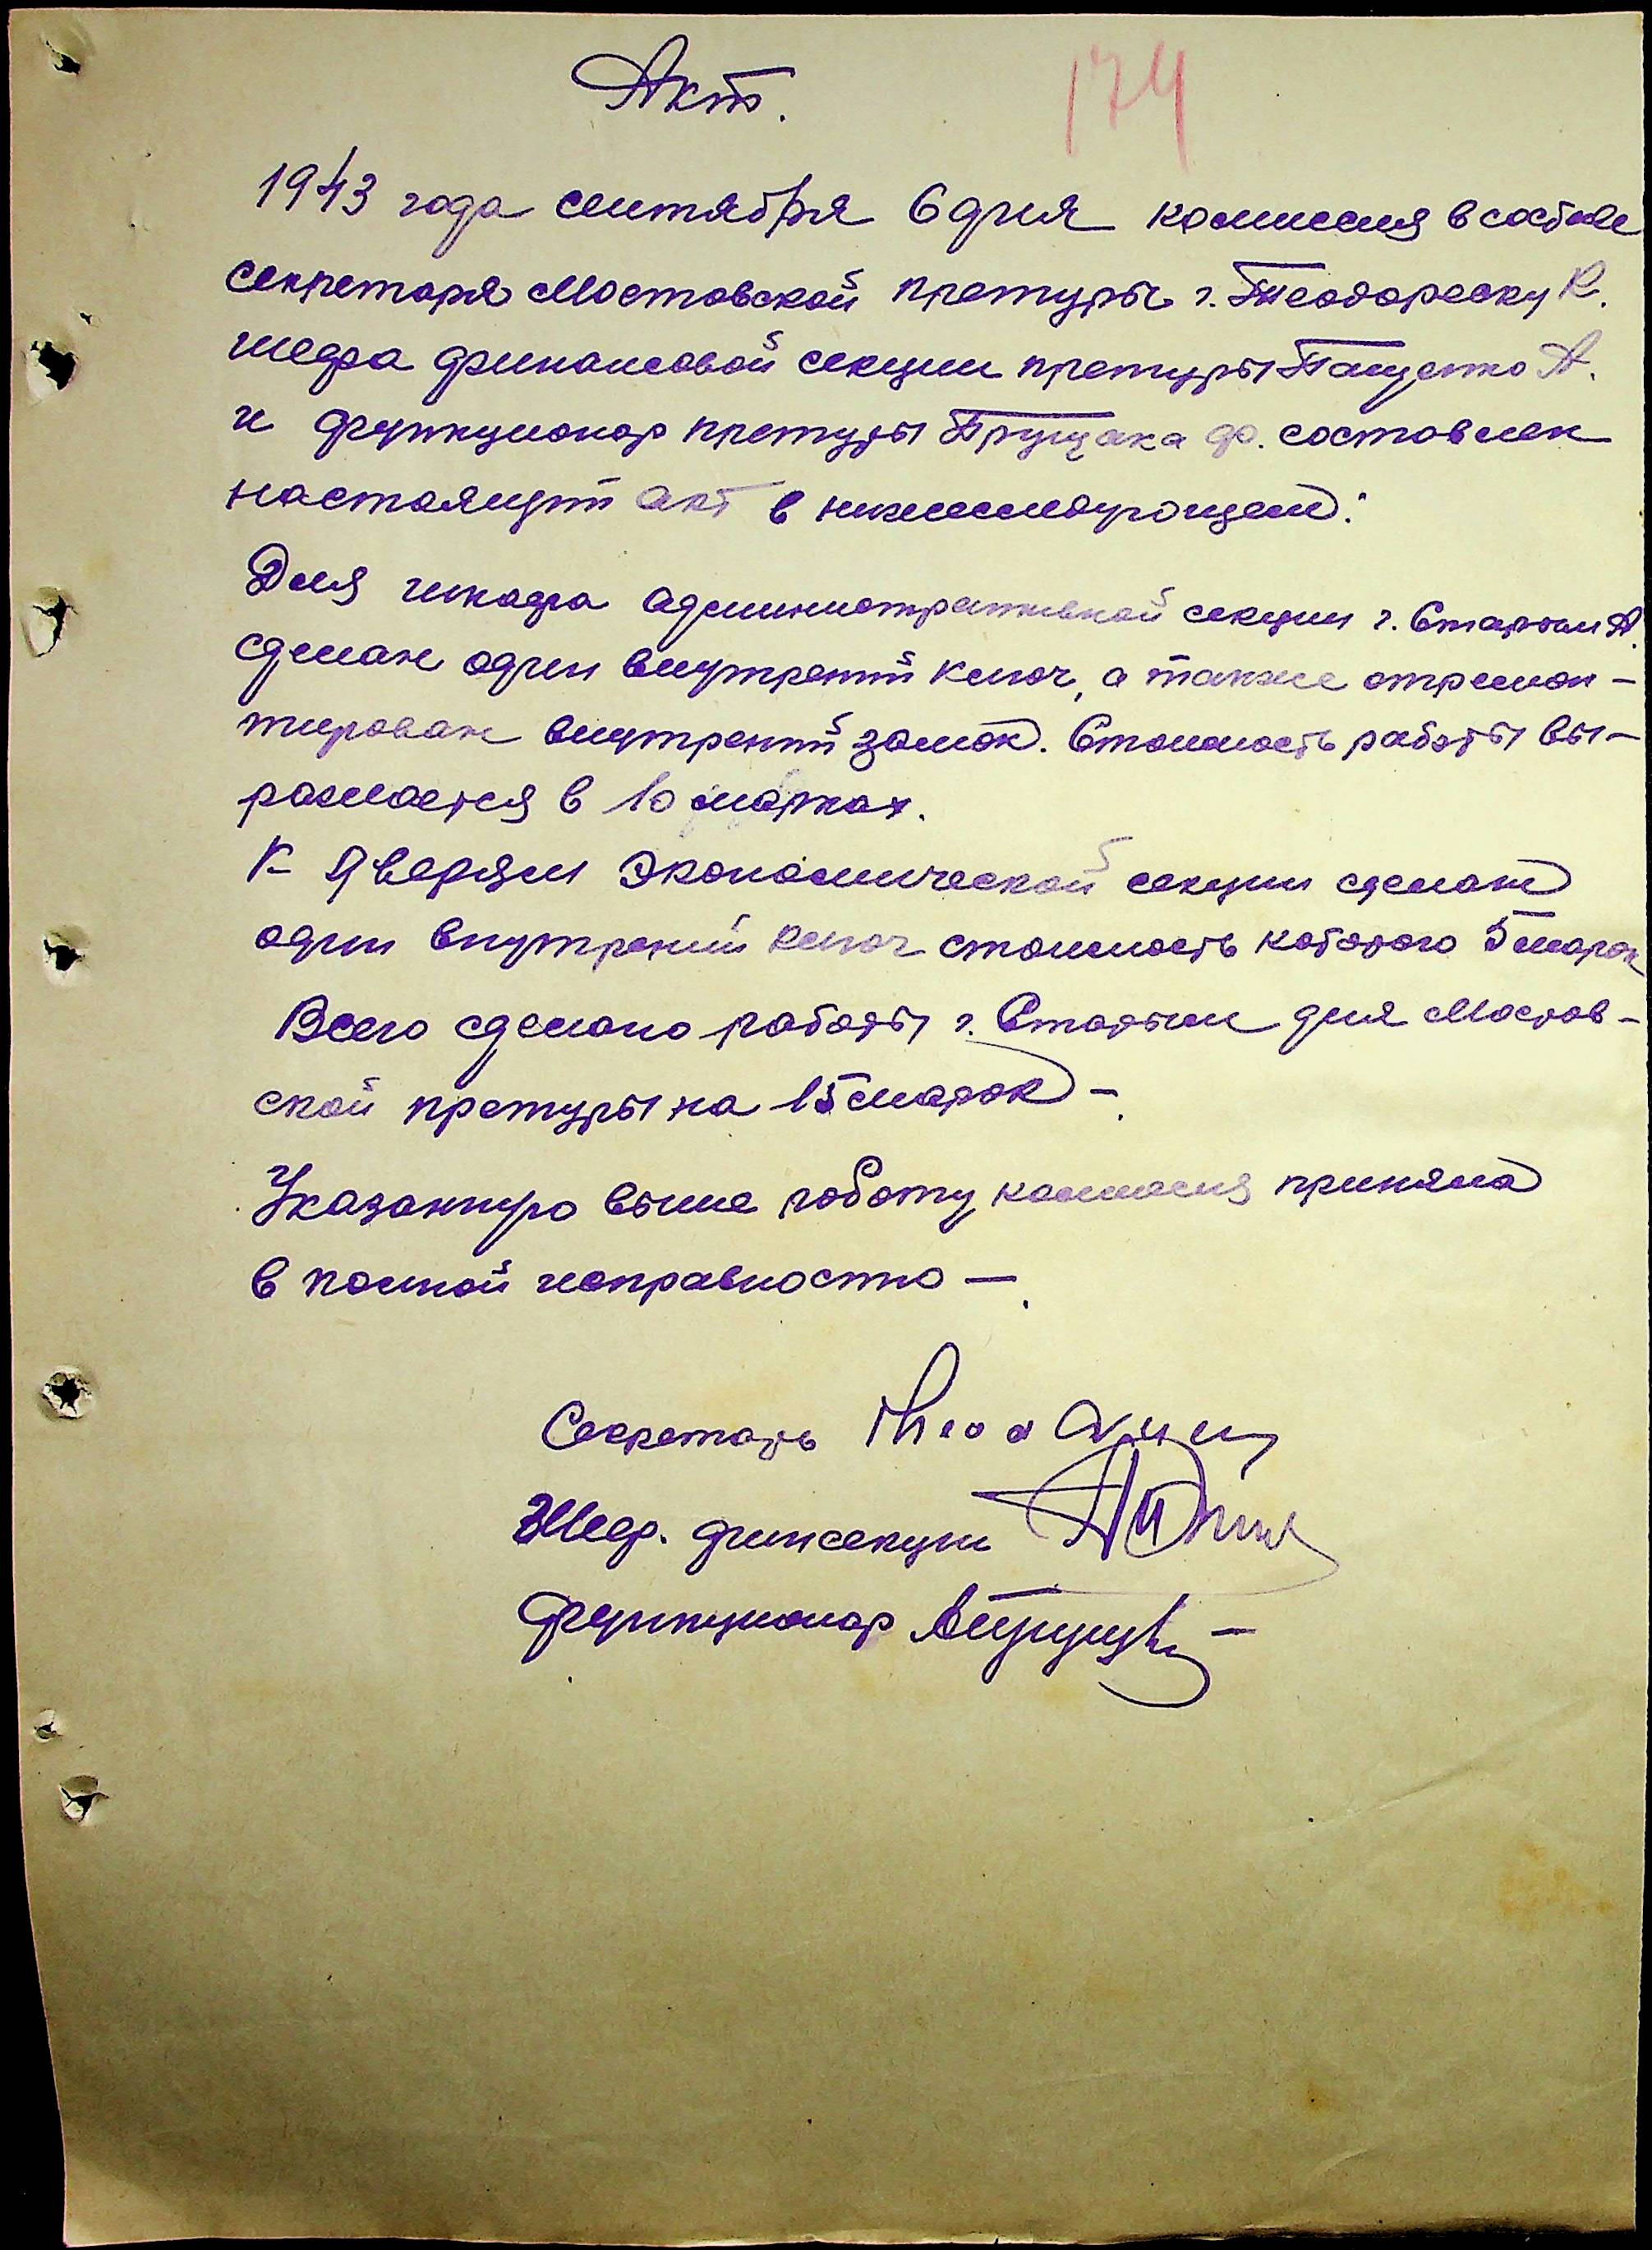 Акт.
174
1943 года сентября 6 дня комиссия в составе
секретаря Мостовской претуры г. Теодореску К.
шефа финансовой секции претуры А.
и функционар претуры Прущака Ф. составлен
настоящий акт в нижеследующем:
Для шкафа административной секции г. Старым А.
сделан один внутрений ключ, а также отремон-
тирован внутрений замок. Стоимость работы вы-
ражается в 10 марках.
К дверям экономической секции сделан
один внутрений ключ стоимость которого 5 марок
Всего сделано работы г. Старым для Мостов-
ской претуры на 15 марок –.
Указанную выше работу комиссия приняла
в полной исправностю –.
Секретарь
Шеф. финсекции
Функционар